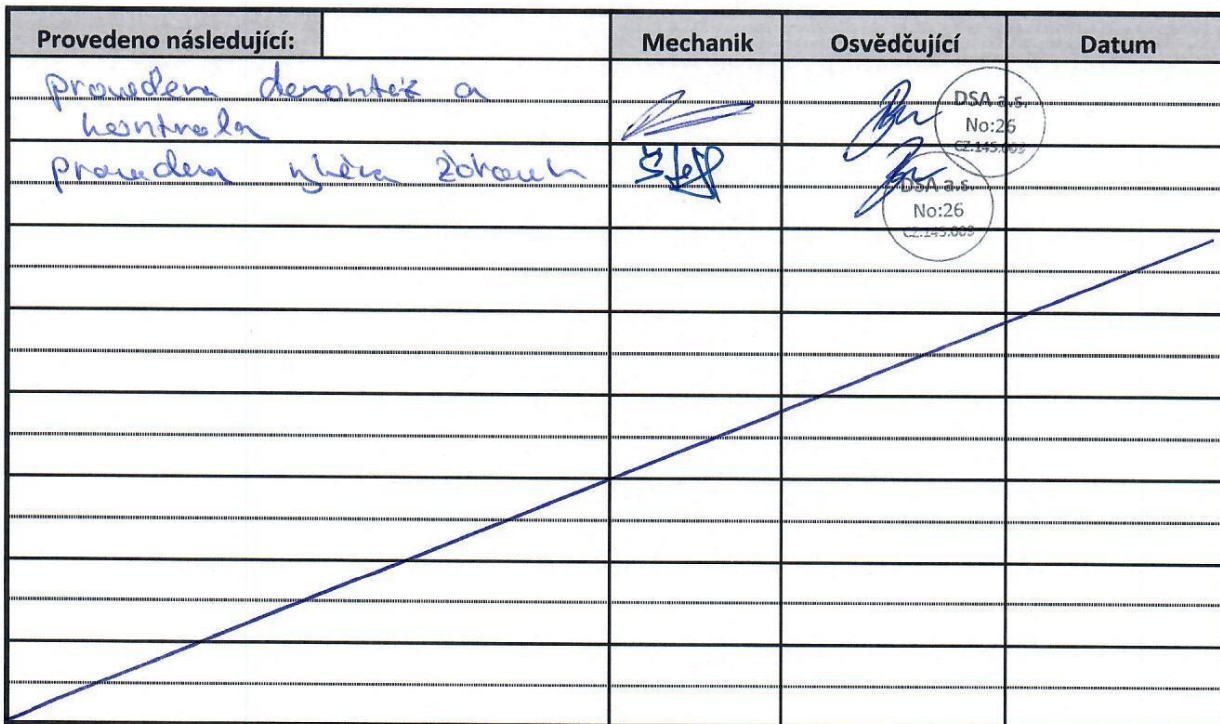 Provedeno následující: Mechanik Osvědčující Datum
provedena demontáž a
kontrola
DSA a.s.
No:26
CZ.145.003
provedena
DSA a.s.
No:26
CZ.145.003